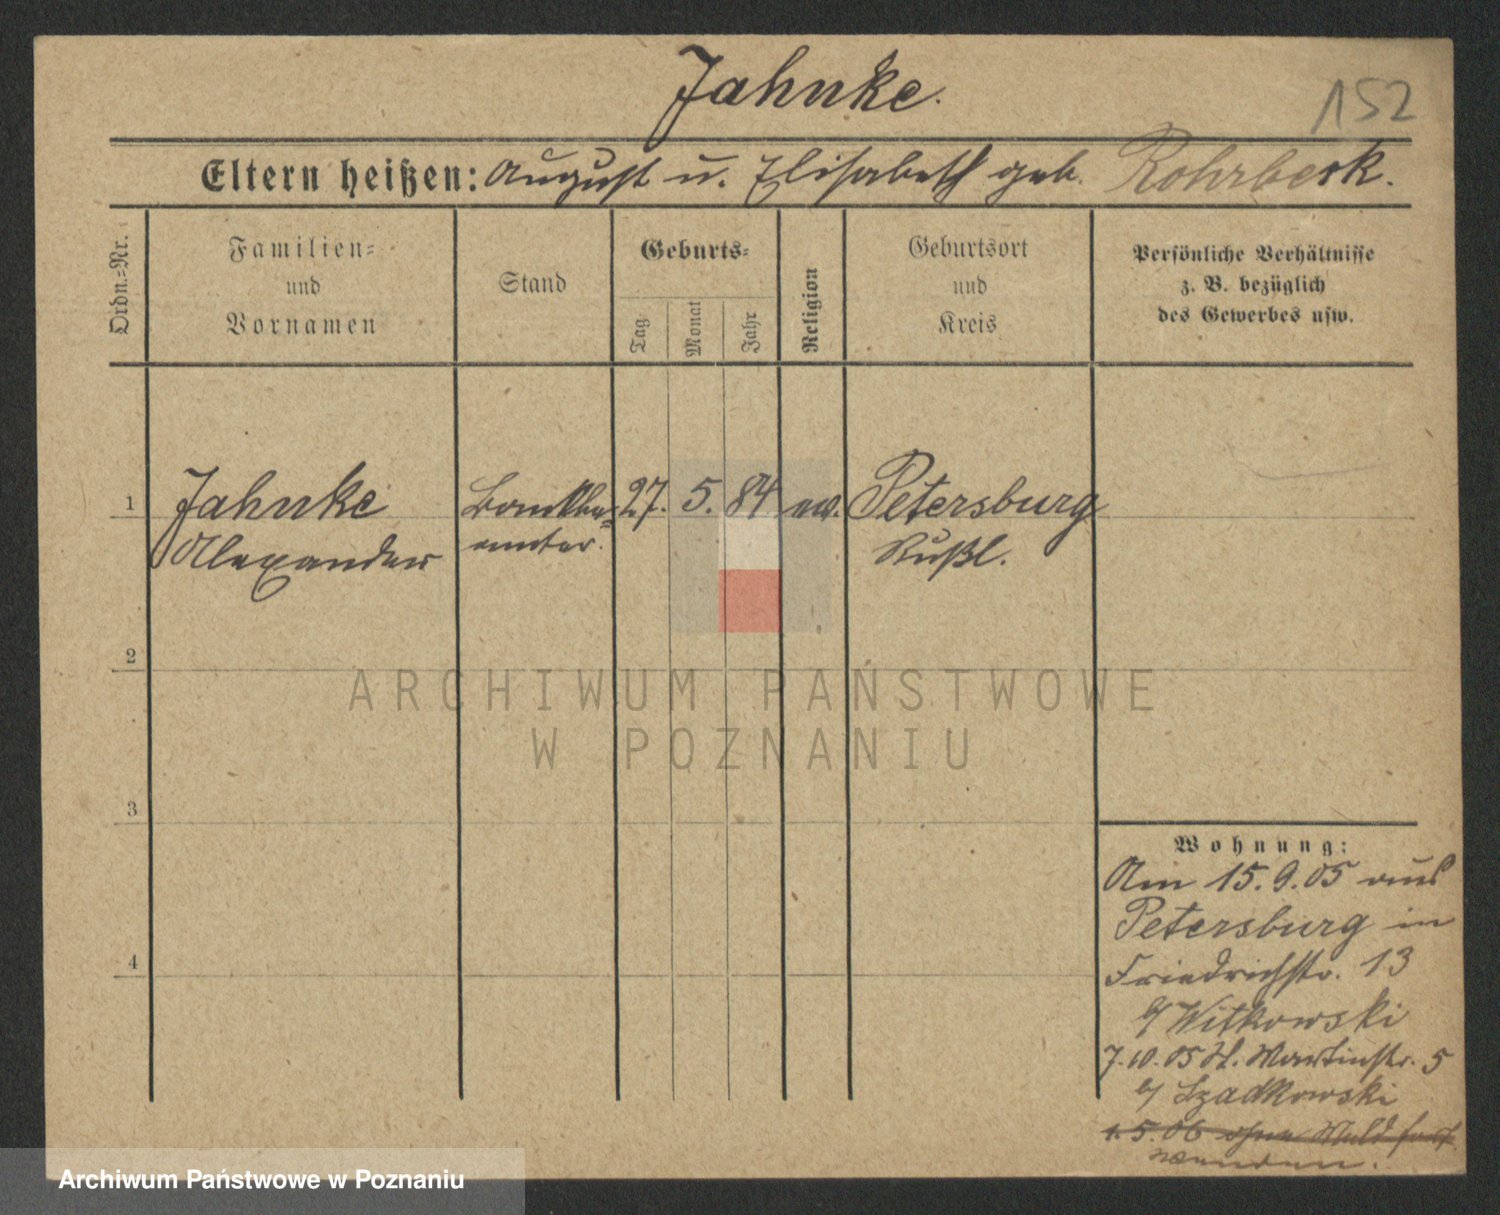 Jahnke.
152
Eltern heißen: August u. Elisabeth geb. Rohrbeck.
Ordn.=Nr.
Familien=
und
Vornamen
Stand
Geburts=
Tag
Monat
Jahr
Religion
Geburtsort
und
Kreis
Persönliche Verhältnisse
z. B. bezüglich
des Gewerbes usw.
1 Jahnke Bankbe= 27. 5. 84 ev. Petersburg
Alexander amter. Rußl.
2
ARCHIWUM PAŃSTWOWE
W POZNANIU
3
4
Wohnung:
Am 15.9.05 aus
Petersburg in
Friedrichstr. 13
b/ Witkowski
7.10.05 St. Martinstr. 5
b/ Szadkowski
1.5.06 ohne Meld. fort
wenden.
Archiwum Państwowe w Poznaniu